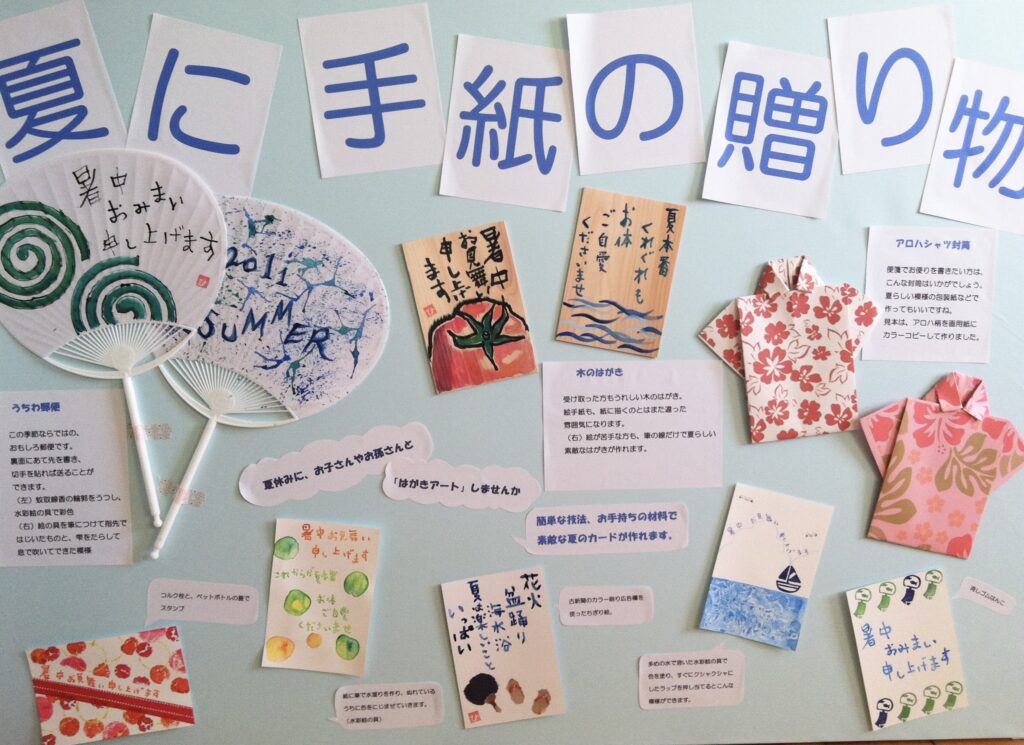 夏に手紙の贈り物
暑中
おみまい
申し上げます
2011
SUMMER
暑中
お見舞い
申し上げ
ます
夏本番
くれぐれも
お体
ご自愛
くださいませ
アロハシャツ封筒
便箋でお便りを書きたい方は、
こんな封筒はいかがでしょう。
夏らしい模様の包装紙などで
作ってもいいですね。
見本は、アロハ柄を画用紙に
カラーコピーして作りました。
うちわ郵便
この季節ならではの、
おもしろ郵便です。
裏面にあて先を書き、
切手を貼れば送ることが
できます。
（左）蚊取線香の輪郭をうつし、
水彩絵の具で彩色
（右）絵の具を筆につけて指先で
はじいたものと、雫をたらして
息で吹いてできた模様
木のはがき
受け取った方もうれしい木のはがき。
絵手紙も、紙に描くのとはまた違った
雰囲気になります。
（右）絵が苦手な方も、筆の線だけで夏らしい
素敵なはがきが作れます。
夏休みに、お子さんやお孫さんと
「はがきアート」しませんか
簡単な技法、お手持ちの材料で
素敵な夏のカードが作れます。
コルク栓と、ペットボトルの蓋で
スタンプ
暑中お見舞い申し上げます
暑中お見舞い
申し上げます
これからが夏本番
お体
ご自愛
くださいませ
紙に筆で水溜りを作り、ぬれている
うちに色をにじませていきます。
（水彩絵の具）
花火
盆踊り
海水浴
夏は楽しいこと
いっぱい
古新聞のカラー刷り広告欄を
使ったちぎり絵。
暑中お見舞い
申し上げます
多めの水で溶いた水彩絵の具で
色を塗り、すぐにクシャクシャに
したラップを押し当てるとこんな
模様ができます。
消しゴムはんこ
暑中
おみまい
申し上げます